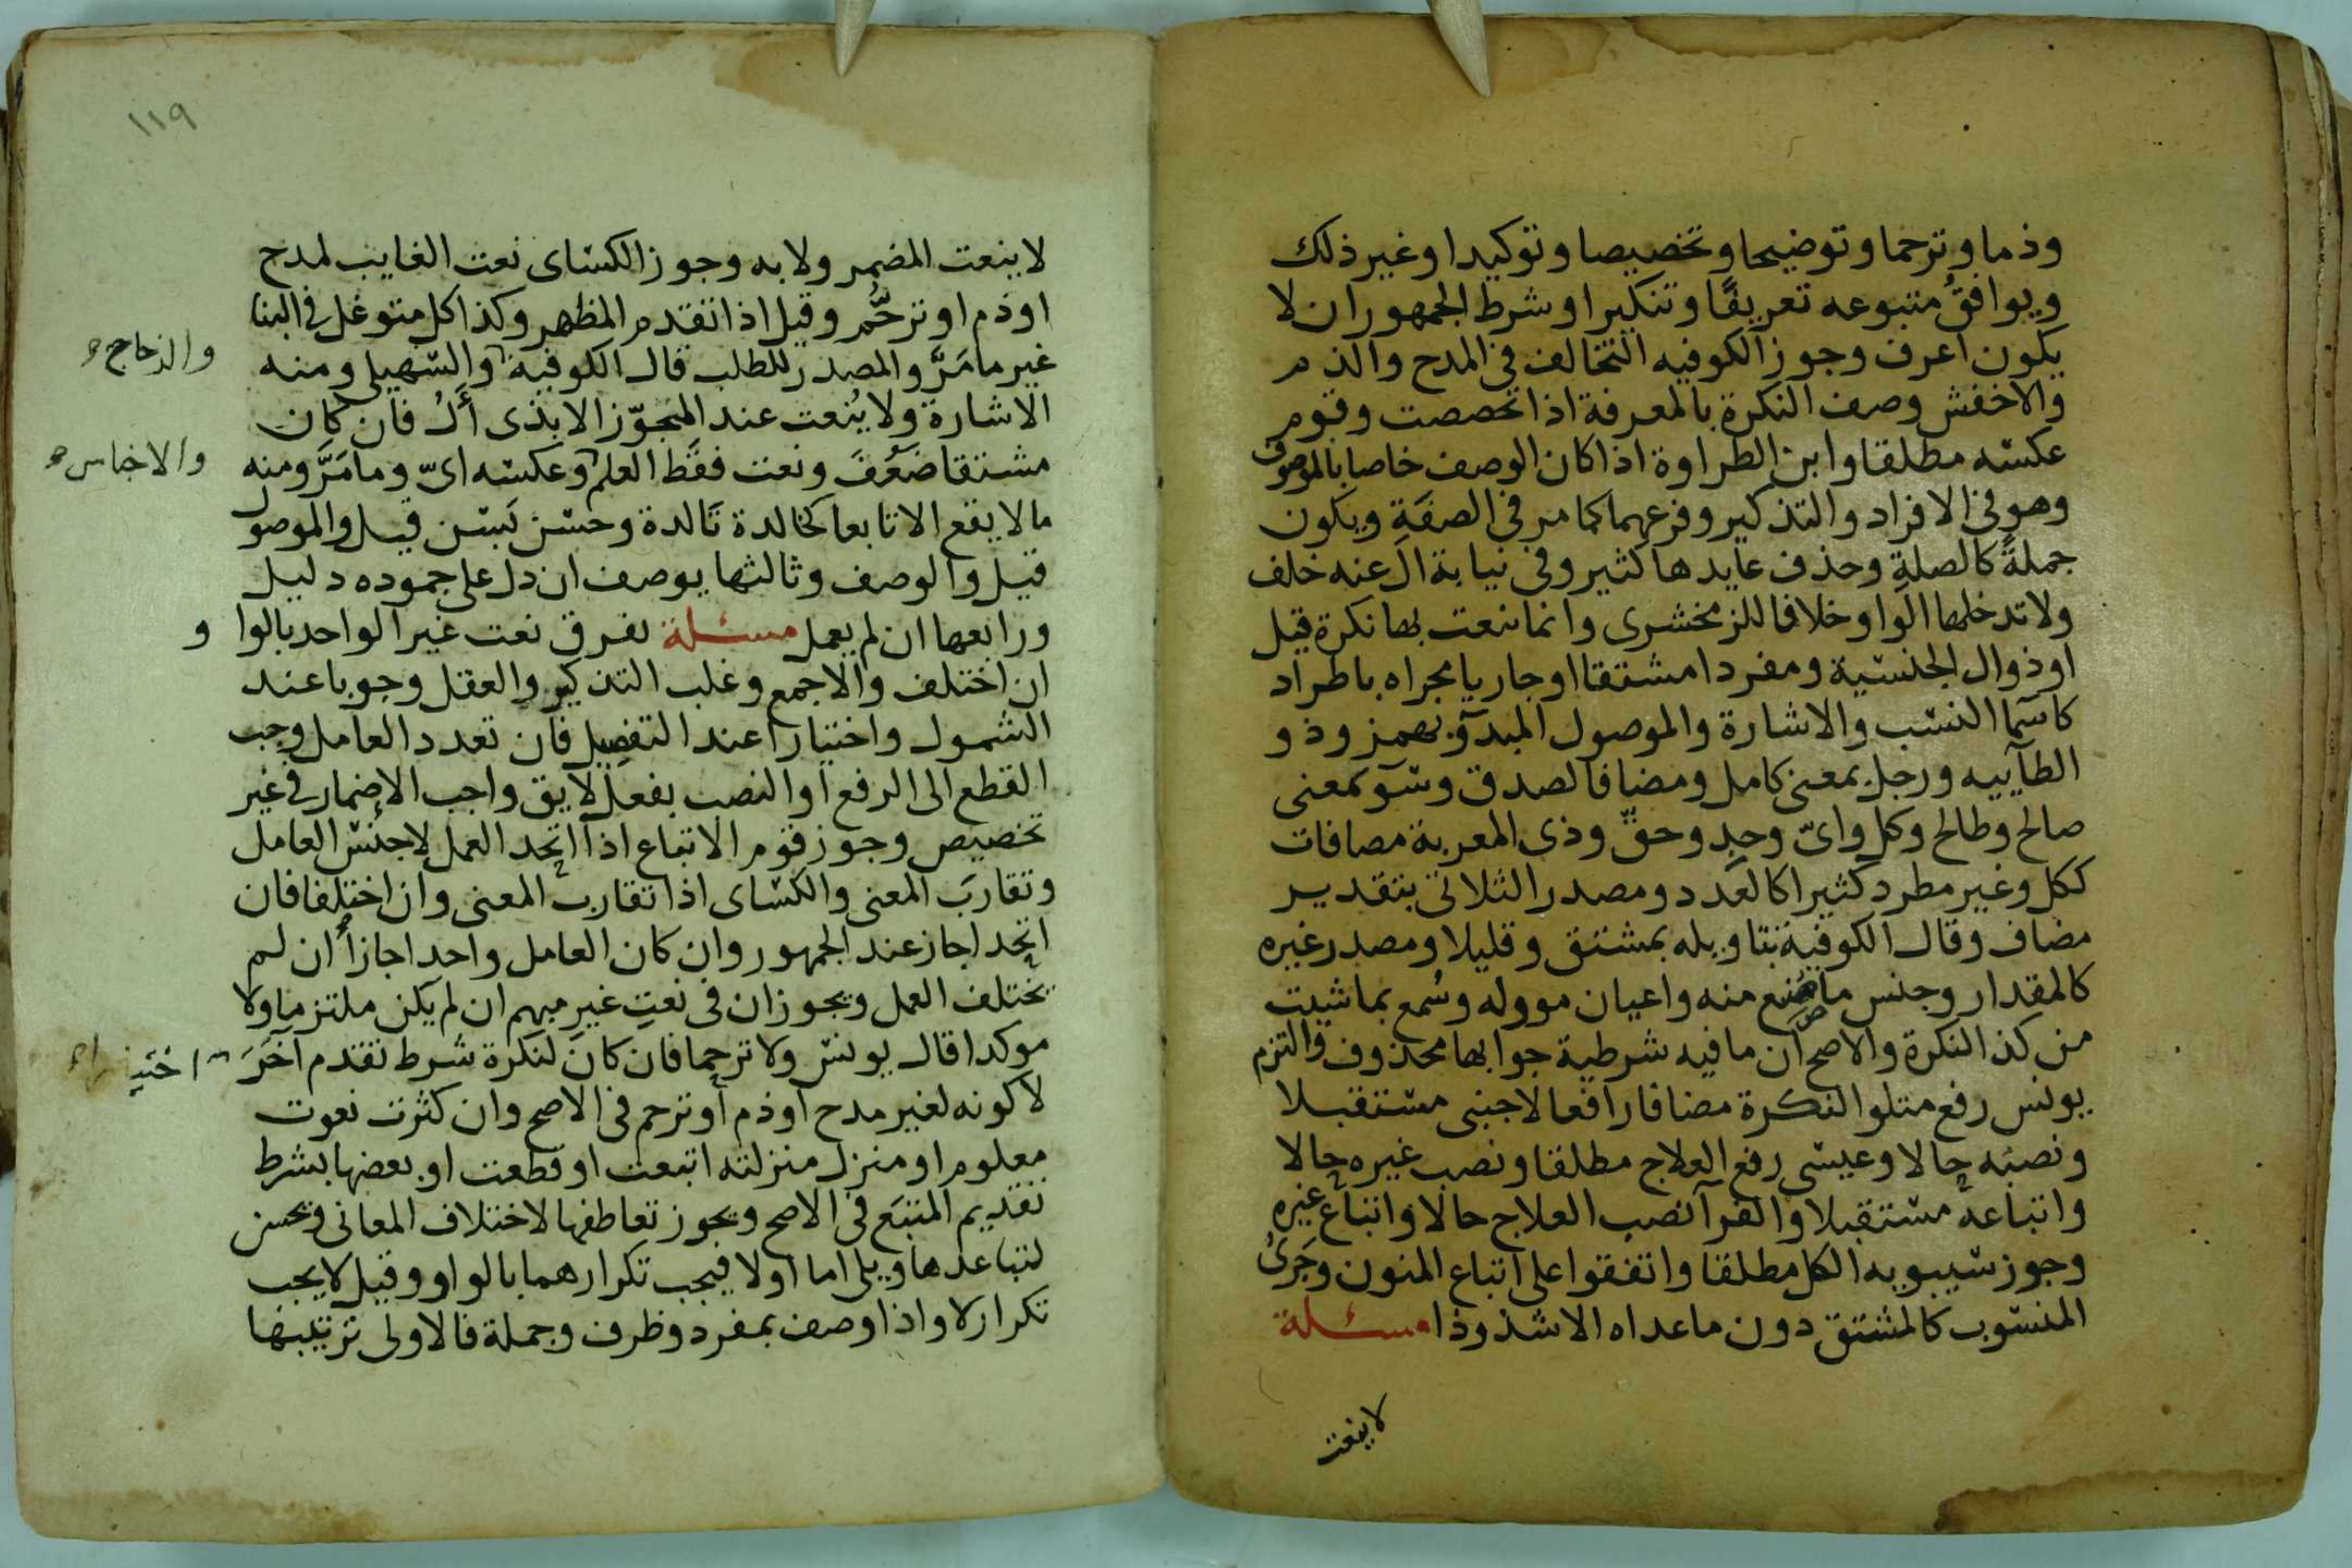 وذما وترحما وتوضيحا وتخصيصا وتوكيدا وغير ذلك
ويوافقُ متبوعه تعريفًا وتنكيرا وشرط الجمهور ان لا
يكون اعرف وجوز الكوفيه التخالف في المدح والذم
والاخفش وصف النكرة بالمعرفة اذا تخصصت وقوم
عكسه مطلقا وابن الطراوة اذا كان الوصف خاصا بالموصوف
وهو في الافراد والتذكير وفرعهما كما مر في الصفةِ ويكون
جملةً كالصلةِ وحذف عايدها كثير وفي نيابة ال عنه خلف
ولا تدخلها الواو خلافا للزمخشرى وانما ننعت بها نكرة قيل
اوذوال الجنسية ومفردا مشتقا او جاريا مجراه باطراد
كاسما النسب والاشارة والموصول المبدوّ بهمز وذو
الطاييه ورجل بمعنى كامل ومضافا لصدق وسَوٓ بمعنى
صالح وطالح وكل واىّ وجدٍ وحقٍّ وذى المعربة مضافات
ككل وغير مطرد كثيرا كالعَدد ومصدر الثلاثى بتقدير
مضاف وقال الكوفية بتاويله بمشتق وقليلا ومصدر غيره
كالمقدار وجنس ما صُنع منه واعيان مووله وسُمع بما شيت
من كذ النكرة والاصح ان ما فيه شرطية جوابها محذوف والتزم
يونس رفع متلو النكرة مضافا رافعا لاجنبى مستقبلا
ونصبَه حالا وعيسى رفع العلاج مطلقا ونصب غيره حالا
واتباعه مستقبلا والفرآ نصب العلاج حالا واتباع غيره
وجوز سيبويه الكل مطلقا واتفقوا على اتباع المنون وجَرىُ
المنسوب كالمشتق دون ما عداه الا شذوذا مسئلة
لا ينعت
١١٩
لا ينعت المضمر ولا به وجوز الكساى نعت الغايب لمدح
اوذم او ترحُّم وقيل اذا تقدم المظهر وكذا كل متوغل في البنا
غير ما مَرَّ والمصدر للطلب قال الكوفية والسهيلى ومنه
والزجاج
الاشارة ولا يُنعت عند المجوّز الا بذى أَلْ فان كان
مشتقا ضَعُفَ ونعت فقط العلم وعكسه اىّ وما مَرَّ ومنه
والاجناس
ما لا يقع الا تابعا كخالدة تَالدة وحسَن بَسَن قيل والموصول
قيل والوصف وثالثها يوصف ان دل على جموده دليل
ورابعها ان لم يعمل مسئلة نفرق نعت غير الواحد بالواو
ان اختلف والا جمع وغلب التذكير والعقل وجوبا عند
الشمول واختيارا عند التفصيل فان تعدد العامل وجب
القطع الى الرفع او النصب بفعل لايق واجب الاضمار في غير
تخصيص وجوز قوم الاتباع اذا اتحد العمل لا جنس العامل
وتقاربَ المعنى والكساى اذا تقارب المعنى وان اختلفا فان
اتحدا جاز عند الجمهور وان كان العامل واحدا جازا ان لم
يختلف العمل ويجوزان في نعتِ غير مبهم ان لم يكن ملتزما ولا
موكدا قال يونس ولا ترحما فان كانَ لنكرة شرط تقدم آخَرَ اختيارا
لا كونه لغير مدح او ذم او ترحم في الاصح وان كثرت نعوت
معلوم او منزل منزلته اتبعت او قطعت او بعضها بشرط
تقديم المتبَع في الاصح ويجوز تعاطفها لاختلاف المعانى ويحسن
لتباعدها ويلى اما او لا فيجب تكرارهما بالواو وقيل لا يجب
تكرار لا واذا وصف بمفرد وظرف وجملة فالاولى ترتيبها